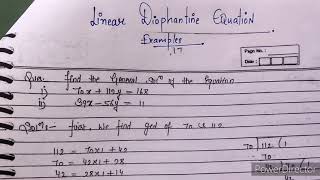 Linear Diophantine Equation
Examples
17
Page No. :
Date :
Ques:- find the General Solⁿ of the Equation
i) 70x + 112y = 168
ii) 39x - 56y = 11
Solⁿ:- first, we find gcd of 70 & 112
112 = 70x1 + 42
70 = 42x1 + 28
42 = 28x1 + 14
70 | 112 ( 1
- 70